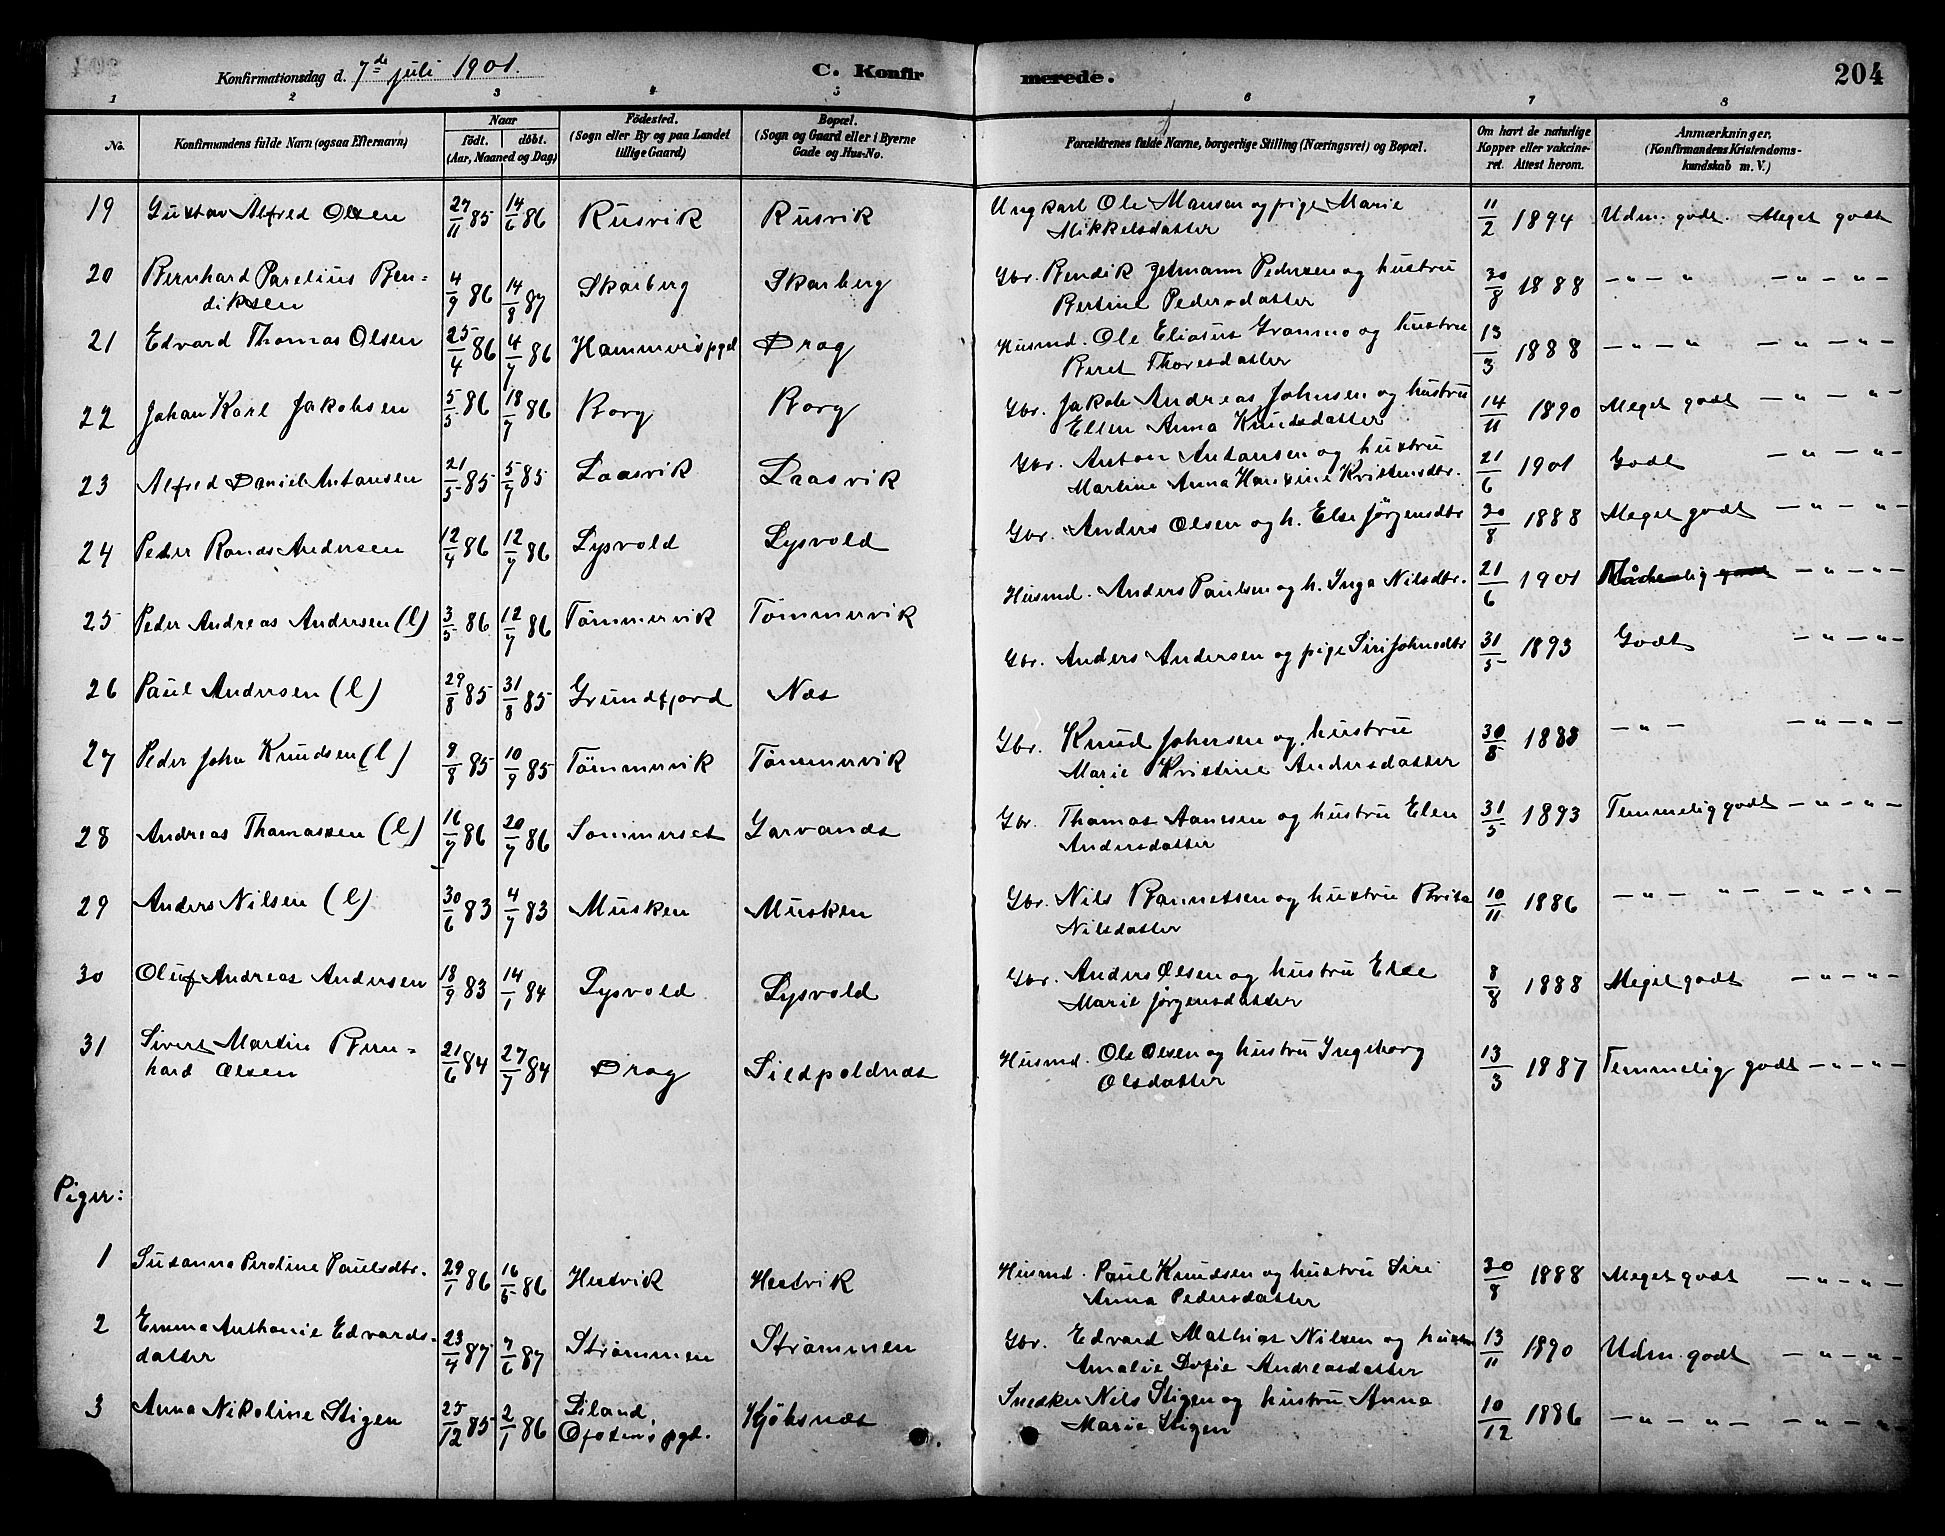 Konfirmationsdag d. 7de juli 1901. C. Konfirmerede. 204
1 2 3 4 5 6 7 8
No. Konfirmandens fulde Navn (ogsaa Efternavn) Naar født. døbt. (Aar, Maaned og Dag) Fødested. (Sogn eller By og paa Landet tillige Gaard) Bopæl. (Sogn og Gaard eller i Byerne Gade og Hus-No. Forældrenes fulde Navne, borgerlige Stilling (Næringsvei) og Bopæl. Om havt de naturlige Kopper eller vakcineret. Attest herom. Anmærkninger, (Konfirmandens Kristendomskundskab m. V.)
19 Gustav Alfred Olsen 27/11 85 14/6 86 Rusvik Rusvik Ungkarl Ole Mansen og pige Marie Mikkelsdatter 11/2 1894 Udm. godt. Meget godt
20 Bernhard Parelius Bendiksen 4/9 86 14/8 87 Skarberg Skarberg Gbr. Bendik Zetmann Pedersen og hustru Bertine Pedersdatter 30/8 1888 — " — " — " — " —
21 Edvard Thomas Olsen 25/4 86 4/7 86 Hammerøpgd Drag Husmd. Ole Eliasus Granmo og hustru Beret Thoresdatter 13/3 1888 — " — " — " — " —
22 Johan Karl Jakobsen 5/5 86 18/7 86 Borg Borg Gbr. Jakob Andreas Johnsen og hustru Ellen Anna Knudsdatter 14/11 1890 Meget godt — " — " —
23 Alfred Daniel Antonsen 21/5 85 5/7 85 Laasvik Laasvik Gbr. Anton Antonsen og hustru Martine Anna Hansine Kristensdtr. 21/6 1901 Godt — " — " —
24 Peder Ronds Andersen 12/4 86 12/7 86 Lysvold Lysvold Gbr. Anders Olsen og h. Else Jørgensdtr 20/8 1888 Meget godt — " — " —
25 Peder Andreas Andersen (l) 3/5 86 12/7 86 Tømmervik Tømmervik Husmd. Anders Paulsen og h. Inga Nilsdtr. 21/6 1901 Mådelig godt — " — " —
26 Paul Andersen (l) 29/8 85 31/8 85 Grundfjord Næs Gbr. Anders Andersen og pige Siri Johnsdtr 31/5 1893 Godt — " — " —
27 Peder John Knudsen (l) 9/8 85 10/9 85 Tømmervik Tømmervik Gbr. Knud Johnsen og hustru Marie Kristine Andersdatter 30/8 1888 — " — — " — " —
28 Andreas Thomassen (l) 16/7 86 20/7 86 Sommerset Garvands Gbr. Thomas Aanesen og hustru Elen Andersdatter 31/5 1893 Temmelig godt — " — " —
29 Anders Nilsen (l) 30/6 83 4/7 83 Musken Musken Gbr. Nils Bonnetsen og hustru Brita Nilsdatter 10/11 1886 — " — " " — " — " —
30 Oluf Andreas Andersen 18/9 83 14/1 84 Lysvold Lysvold Gbr. Anders Olsen og hustru Else Marie Jørgensdatter 8/8 1888 Meget godt — " — " —
31 Sivert Martin Bernhard Olsen 21/6 84 27/7 84 Drag Sildpoldnæs Husmd. Ole Olsen og hustru Ingeborg Olsdatter 13/3 1887 Temmelig godt — " — " —
Piger:
1 Susanna Peroline Paulsdtr. 29/1 86 16/5 86 Hestvik Hestvik Husmd. Paul Knudsen og hustru Siri Anna Pedersdatter 30/8 1888 Meget godt — " — " —
2 Emma Anthonie Edvardsdatter 23/4 87 7/6 87 Strømmen Strømmen Gbr. Edvard Mathias Nilsen og hustru Amalie Sofie Andreasdatter 13/11 1890 Udm. godt — " — " —
3 Anna Nikoline Stigen 25/12 85 2/1 86 Liland, Ofotens pgd. Kjøbsnæs Snedker Nils Stigen og hustru Anna Marie Stigen 10/12 1886 — " — " — — " — " —